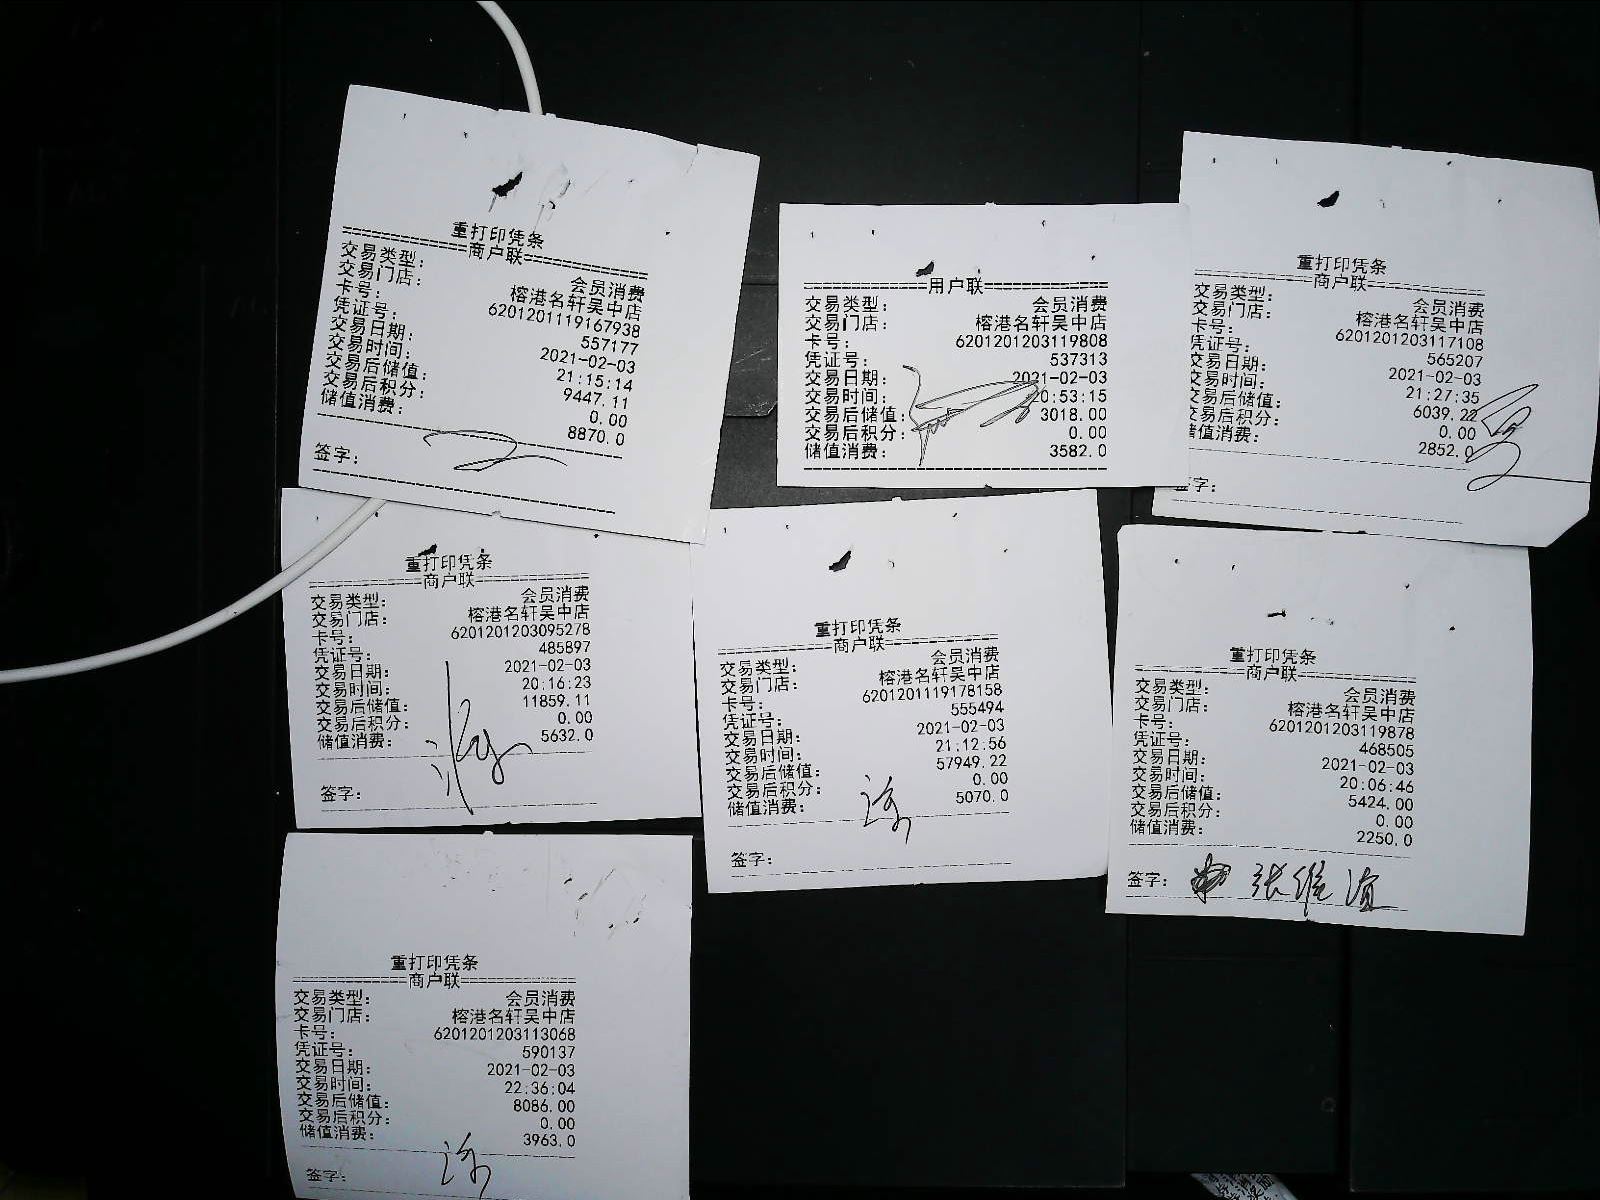 重打印凭条
商户联
交易类型: 会员消费
交易门店: 榕港名轩吴中店
卡号: 6201201119167938
凭证号: 557177
交易日期: 2021-02-03
交易时间: 21:15:14
交易后储值: 9447.11
交易后积分: 0.00
储值消费: 8870.0
签字:
用户联
交易类型: 会员消费
交易门店: 榕港名轩吴中店
卡号: 6201201203119808
凭证号: 537313
交易日期: 2021-02-03
交易时间: 20:53:15
交易后储值: 3018.00
交易后积分: 0.00
储值消费: 3582.0
重打印凭条
商户联
交易类型: 会员消费
交易门店: 榕港名轩吴中店
卡号: 6201201203117108
凭证号: 565207
交易日期: 2021-02-03
交易时间: 21:27:35
交易后储值: 6039.22
交易后积分: 0.00
储值消费: 2852.0
签字:
重打印凭条
商户联
交易类型: 会员消费
交易门店: 榕港名轩吴中店
卡号: 6201201203095278
凭证号: 485897
交易日期: 2021-02-03
交易时间: 20:16:23
交易后储值: 11859.11
交易后积分: 0.00
储值消费: 5632.0
签字:
重打印凭条
商户联
交易类型: 会员消费
交易门店: 榕港名轩吴中店
卡号: 6201201119178158
凭证号: 555494
交易日期: 2021-02-03
交易时间: 21:12:56
交易后储值: 57949.22
交易后积分: 0.00
储值消费: 5070.0
签字:
重打印凭条
商户联
交易类型: 会员消费
交易门店: 榕港名轩吴中店
卡号: 6201201203119878
凭证号: 468505
交易日期: 2021-02-03
交易时间: 20:06:46
交易后储值: 5424.00
交易后积分: 0.00
储值消费: 2250.0
签字: 张维
重打印凭条
商户联
交易类型: 会员消费
交易门店: 榕港名轩吴中店
卡号: 6201201203113068
凭证号: 590137
交易日期: 2021-02-03
交易时间: 22:36:04
交易后储值: 8086.00
交易后积分: 0.00
储值消费: 3963.0
签字: